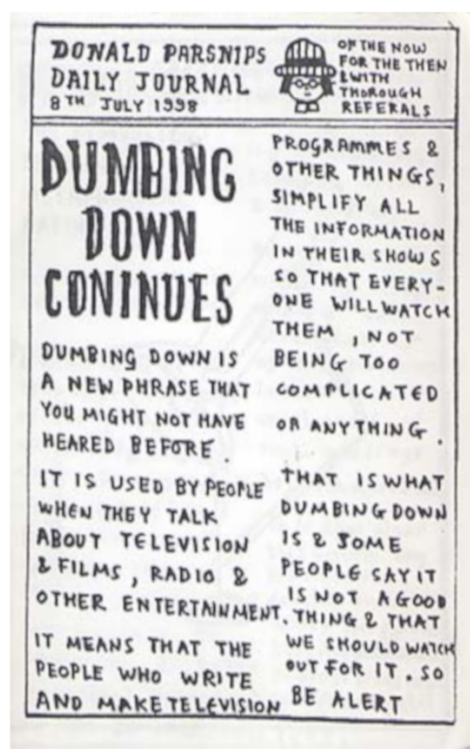 DONALD PARSNIPS
DAILY JOURNAL
8TH JULY 1998
OF THE NOW
FOR THE THEN
& WITH
THOROUGH
REFERALS
DUMBING
DOWN
CONINUES
DUMBING DOWN IS
A NEW PHRASE THAT
YOU MIGHT NOT HAVE
HEARED BEFORE.
IT IS USED BY PEOPLE
WHEN THEY TALK
ABOUT TELEVISION
& FILMS, RADIO &
OTHER ENTERTAINMENT.
IT MEANS THAT THE
PEOPLE WHO WRITE
AND MAKE TELEVISION
PROGRAMMES &
OTHER THINGS,
SIMPLIFY ALL
THE INFORMATION
IN THEIR SHOWS
SO THAT EVERY-
ONE WILL WATCH
THEM, NOT
BEING TOO
COMPLICATED
OR ANYTHING.
THAT IS WHAT
DUMBING DOWN
IS & SOME
PEOPLE SAY IT
IS NOT A GOOD
THING & THAT
WE SHOULD WATCH
OUT FOR IT. SO
BE ALERT